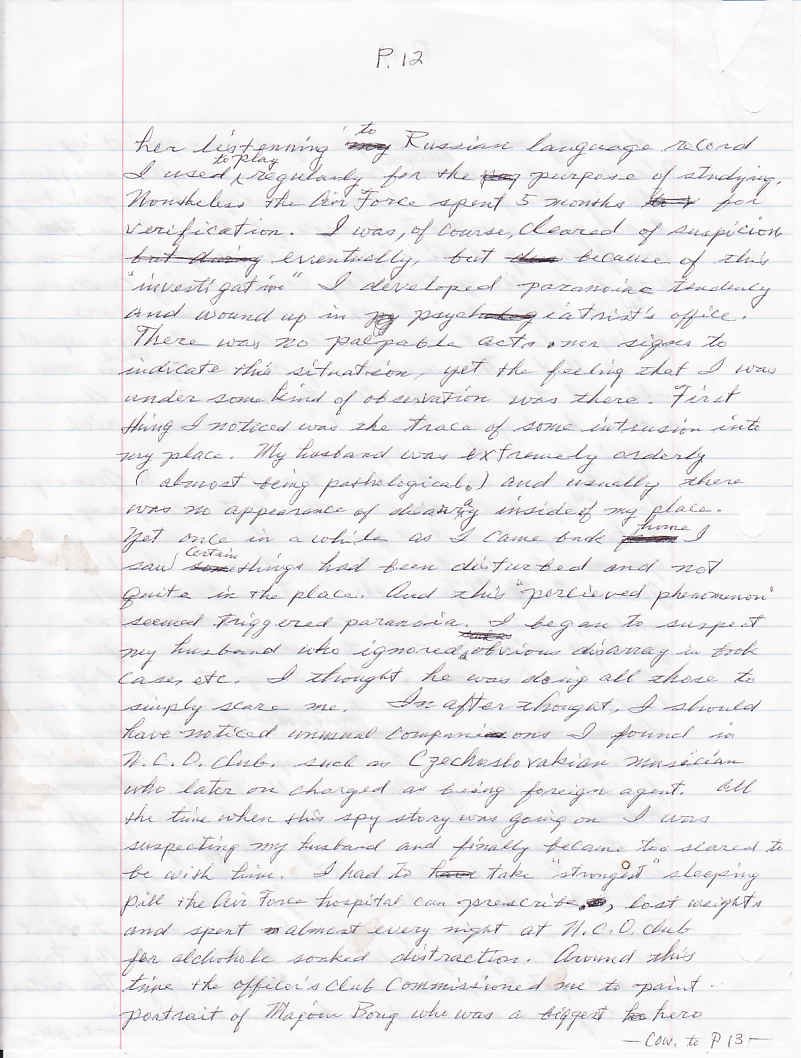 P. 12
her listenning to Russian language record
I used to play regularly for the purpose of studying.
Nonetheless the Air Force spent 5 months for
verification. I was, of course, cleared of suspicion
but during eventually, but because of this
"investigation" I developed paranoiac tendency
and wound up in psychiatrist's office.
There was no palpable acts nor signs to
indicate this situation, yet the feeling that I was
under some kind of observation was there. First
thing I noticed was the trace of some intrusion into
my place. My husband was extremely orderly
(almost being pathological.) and usually there
was no appearance of disarray inside of my place.
Yet once in a while as I came back home I
saw certain things had been disturbed and not
quite in the place. And this "percieved phenomenon"
seemed triggered paranoia. I began to suspect
my husband who ignored obvious disarray in book
case, etc. I thought he was doing all those to
simply scare me. In after thought, I should
have noticed unusual companions I found in
N.C.O. Club. such as Czechoslovakian musician
who later on charged as being foreign agent. All
the time when this spy story was going on I was
suspecting my husband and finally became too scared to
be with him. I had to take "strongest" sleeping
pill the Air Force hospital can prescribe, lost weights
and spent almost every night at N.C.O. club
for alchohole soaked distraction. Around this
time the officer's club commissioned me to paint
portrait of Majour Bong who was a biggest hero
— Con. to P 13 —